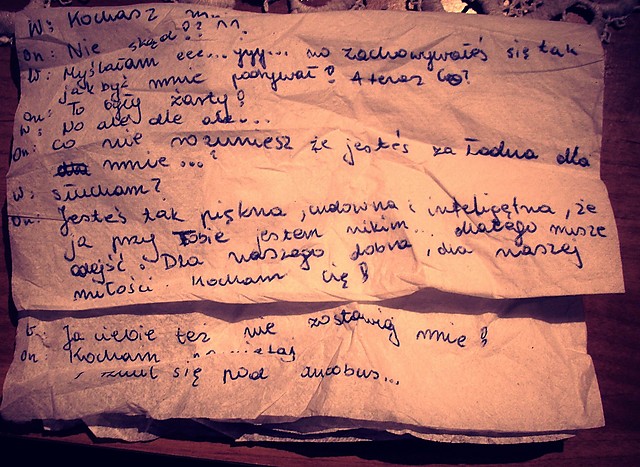 W: Kochasz m...
on: Nie skąd?? ^^
W: Myślałam eee... yyyy... no zachowywałeś się tak
jak byś mnie podrywał? A teraz Co?
on: To były żarty?
W: No ale ale ale....
on: co nie rozumiesz że jesteś za ładna dla
mnie...?
W: słucham?
on: Jesteś tak piękna, cudowna i inteligętna, że
ja przy Tobie jestem nikim... dlatego musze
odejść. Dla naszego dobra, dla naszej
miłości. Kocham cię!
Ja ciebie też nie zostawiaj mnie!
on: Kocham
się pod autobus...